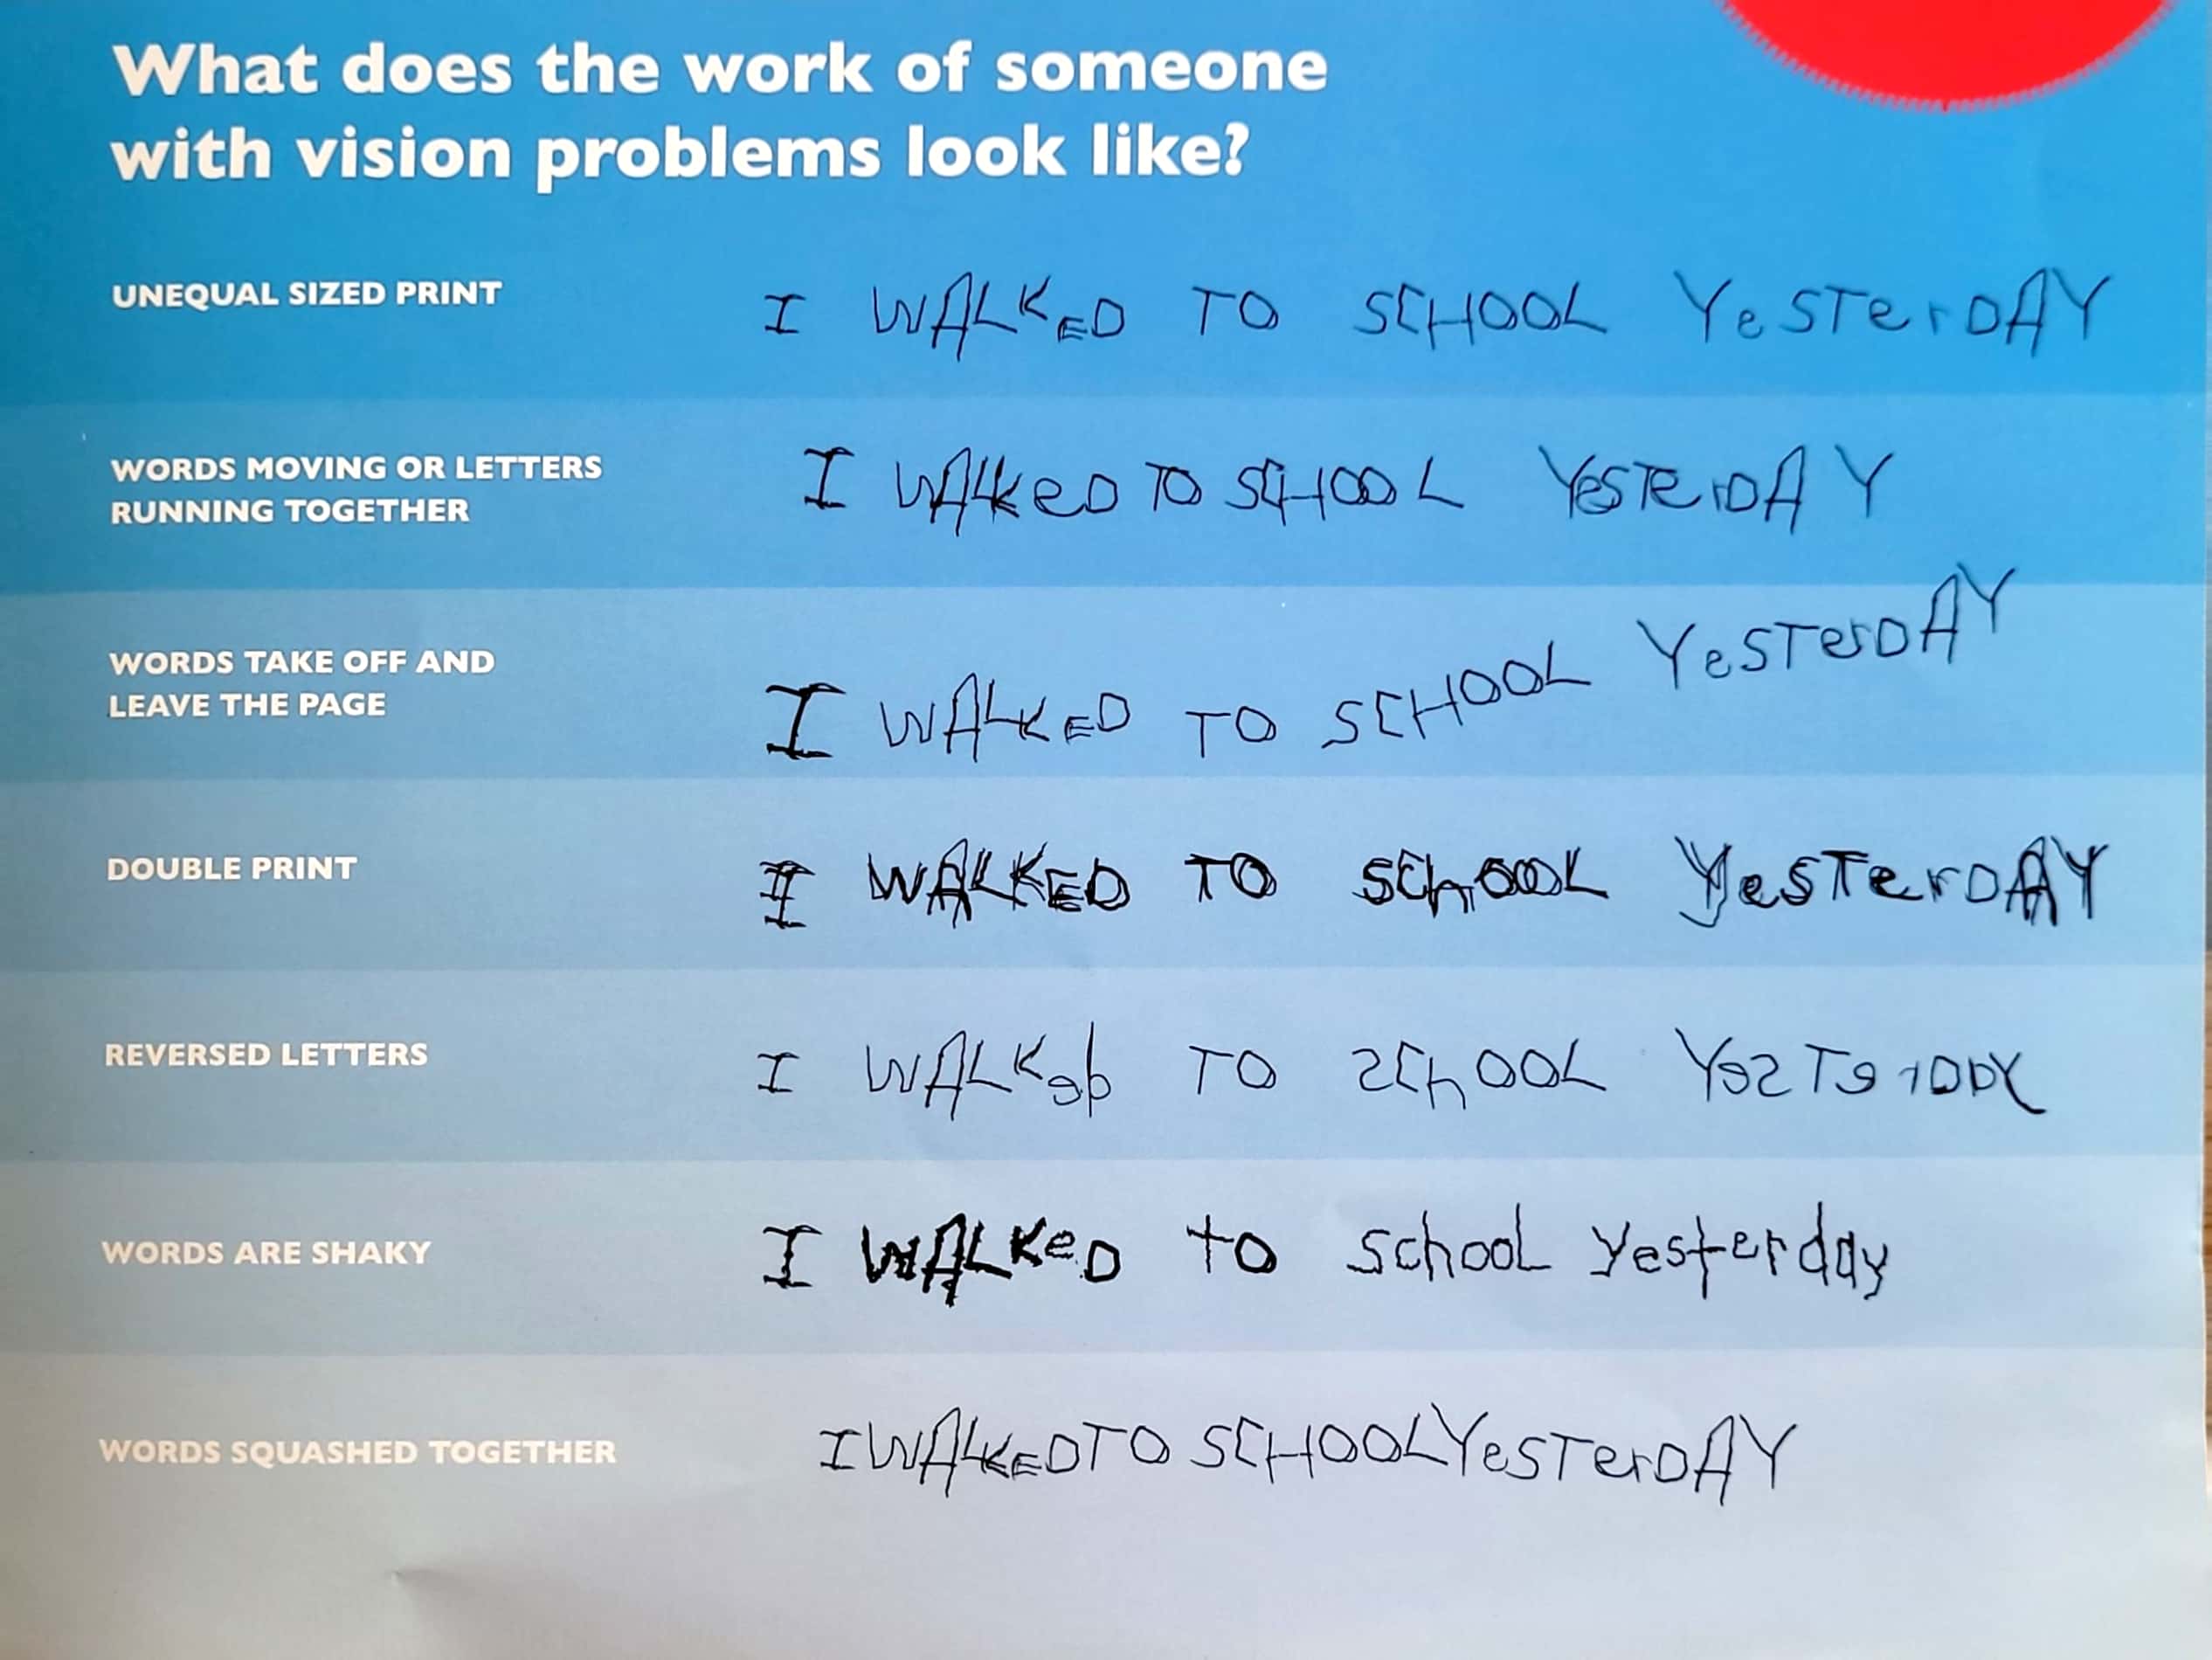 What does the work of someone
with vision problems look like?
UNEQUAL SIZED PRINT
I WALKED TO SCHOOL YeSTerDAY
WORDS MOVING OR LETTERS
RUNNING TOGETHER
I WALkeD TO SCHOOL YeSTerDAY
WORDS TAKE OFF AND
LEAVE THE PAGE
I WALKED TO SCHOOL YeSTerDAY
DOUBLE PRINT
I WALKED TO SChOOL YesTerDAY
REVERSED LETTERS
I WALKɘb TO SChOOL YɘsTɘrDAY
WORDS ARE SHAKY
I WALKeD to schooL yesterday
WORDS SQUASHED TOGETHER
IWALKEDTO SCHOOLYeSTerDAY